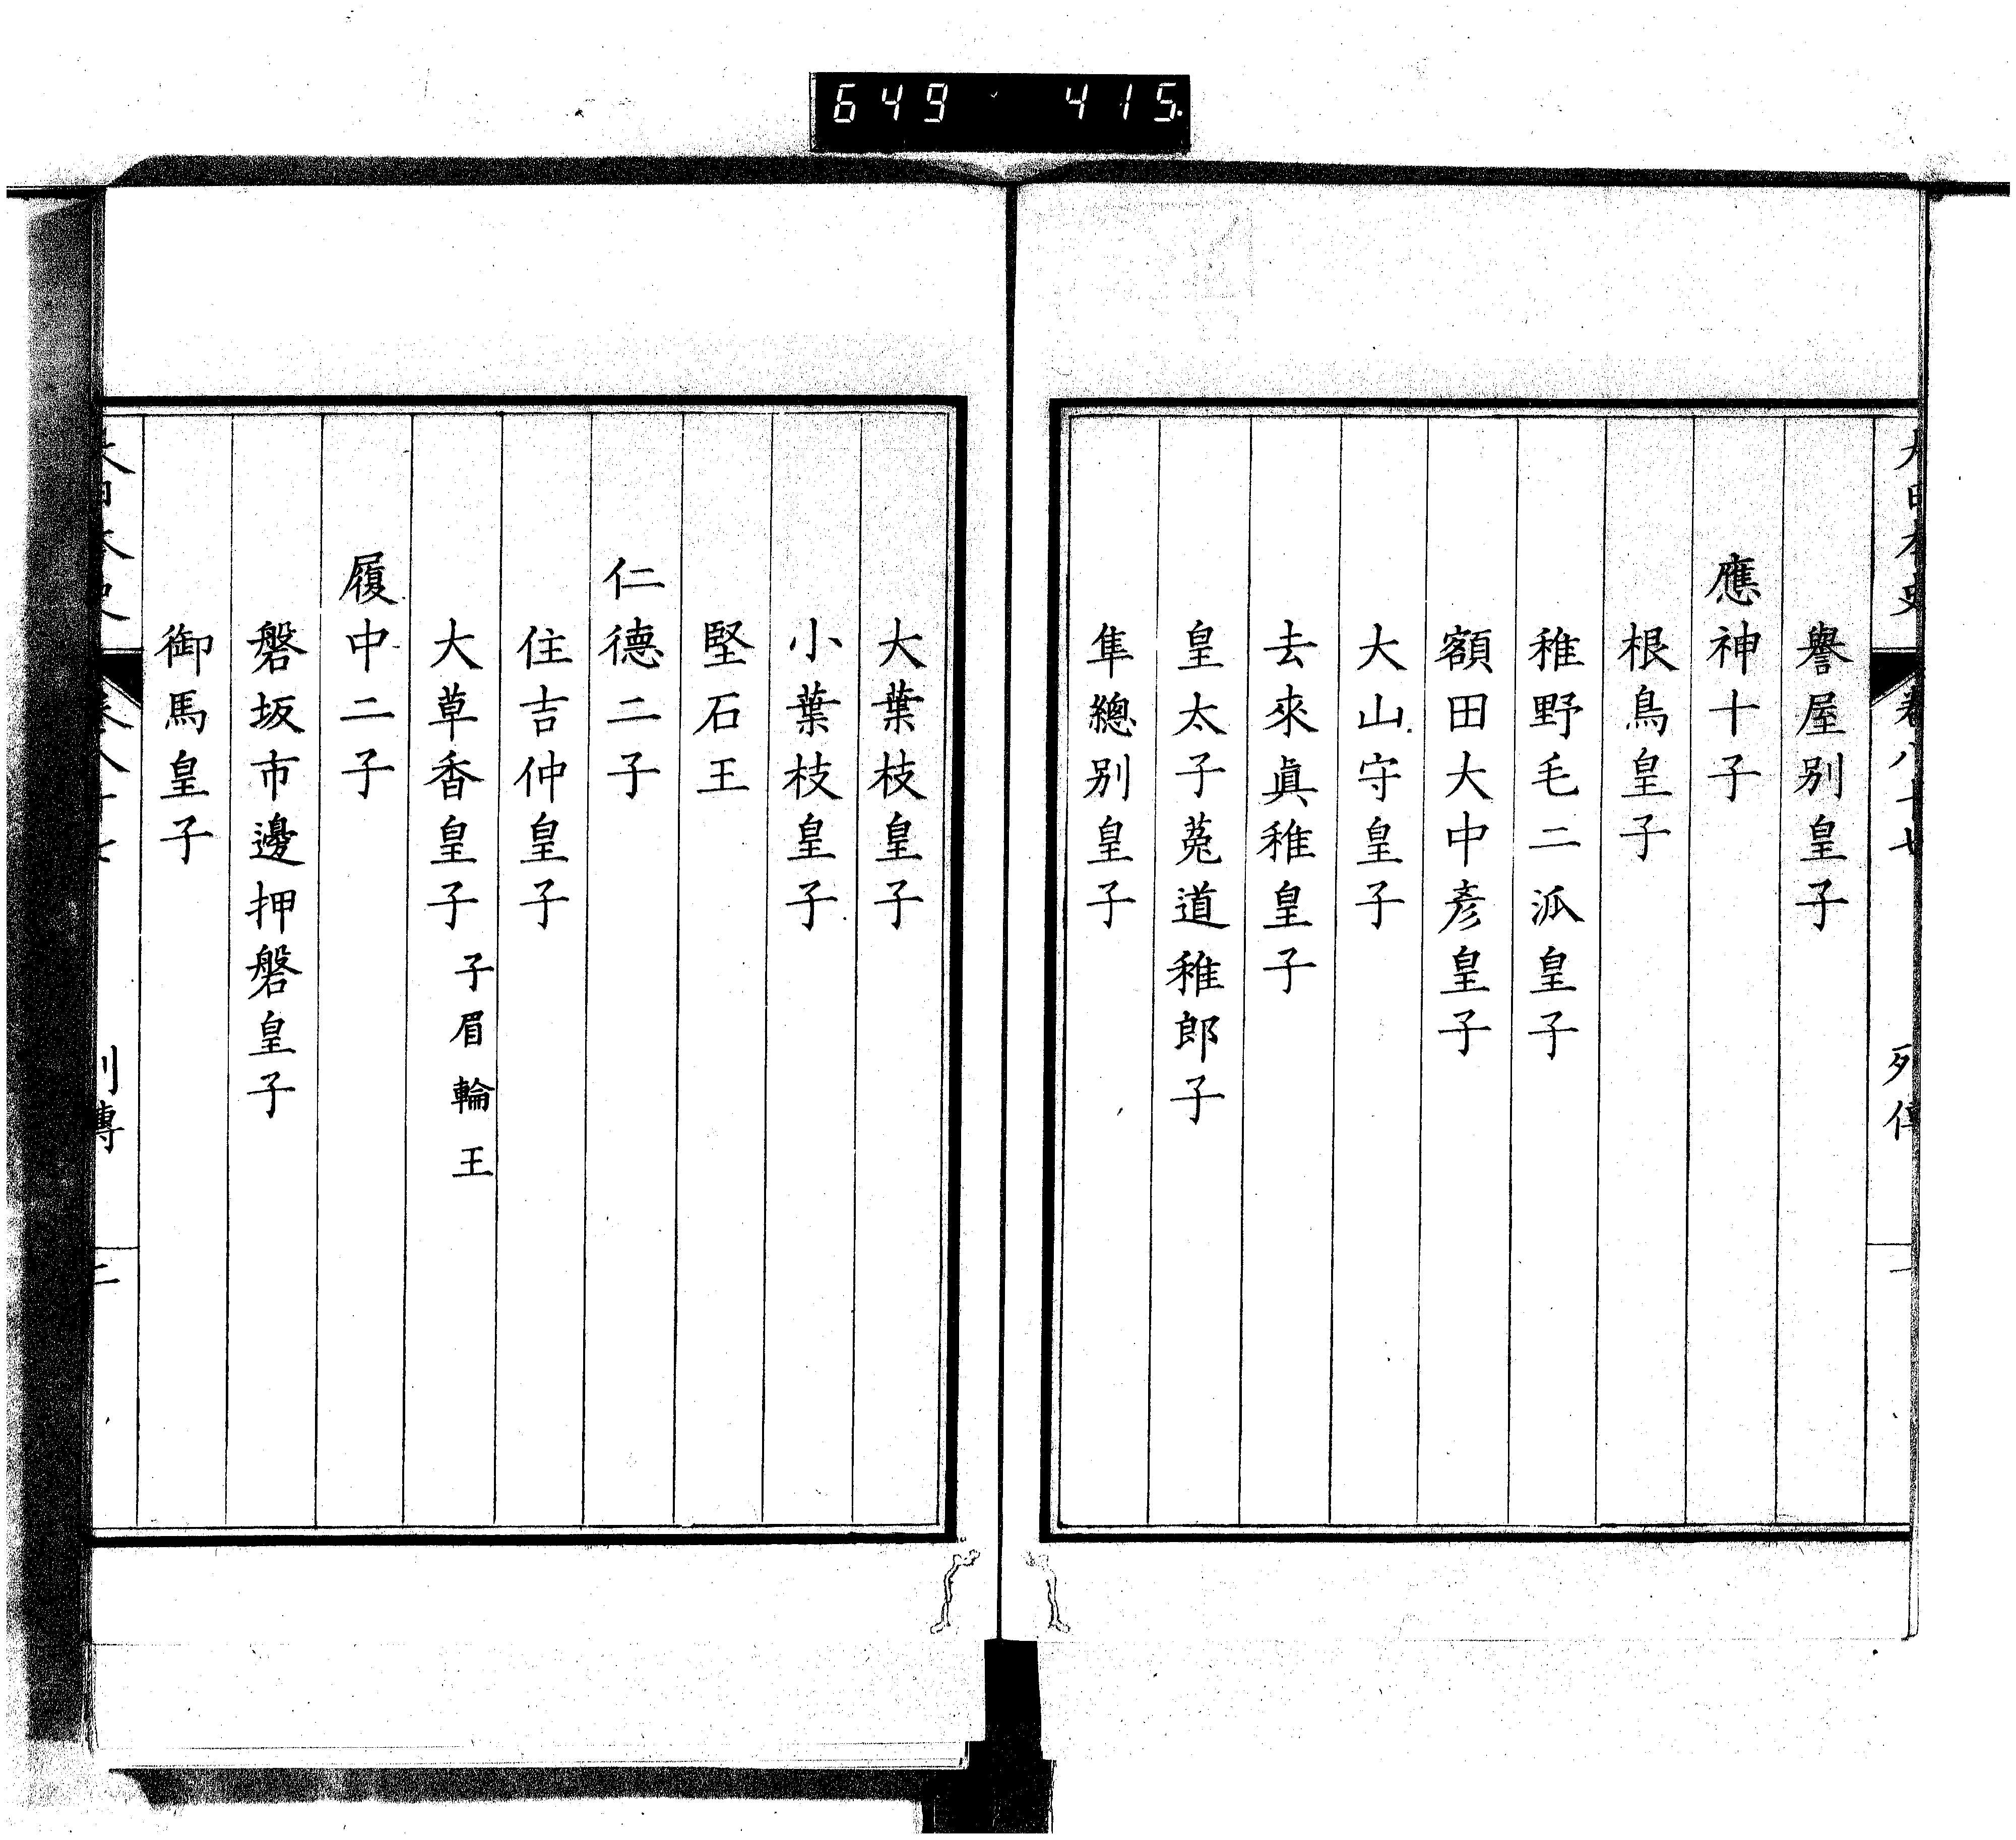 649 415
大日本史 卷八十七 列傳 一
譽屋別皇子
應神十子
根鳥皇子
稚野毛二派皇子
額田大中彥皇子
大山守皇子
去來眞稚皇子
皇太子菟道稚郎子
隼總別皇子
大葉枝皇子
小葉枝皇子
堅石王
仁德二子
住吉仲皇子
大草香皇子 子眉輪王
履中二子
磐坂市邊押磐皇子
御馬皇子
大日本史 卷八十七 列傳 二